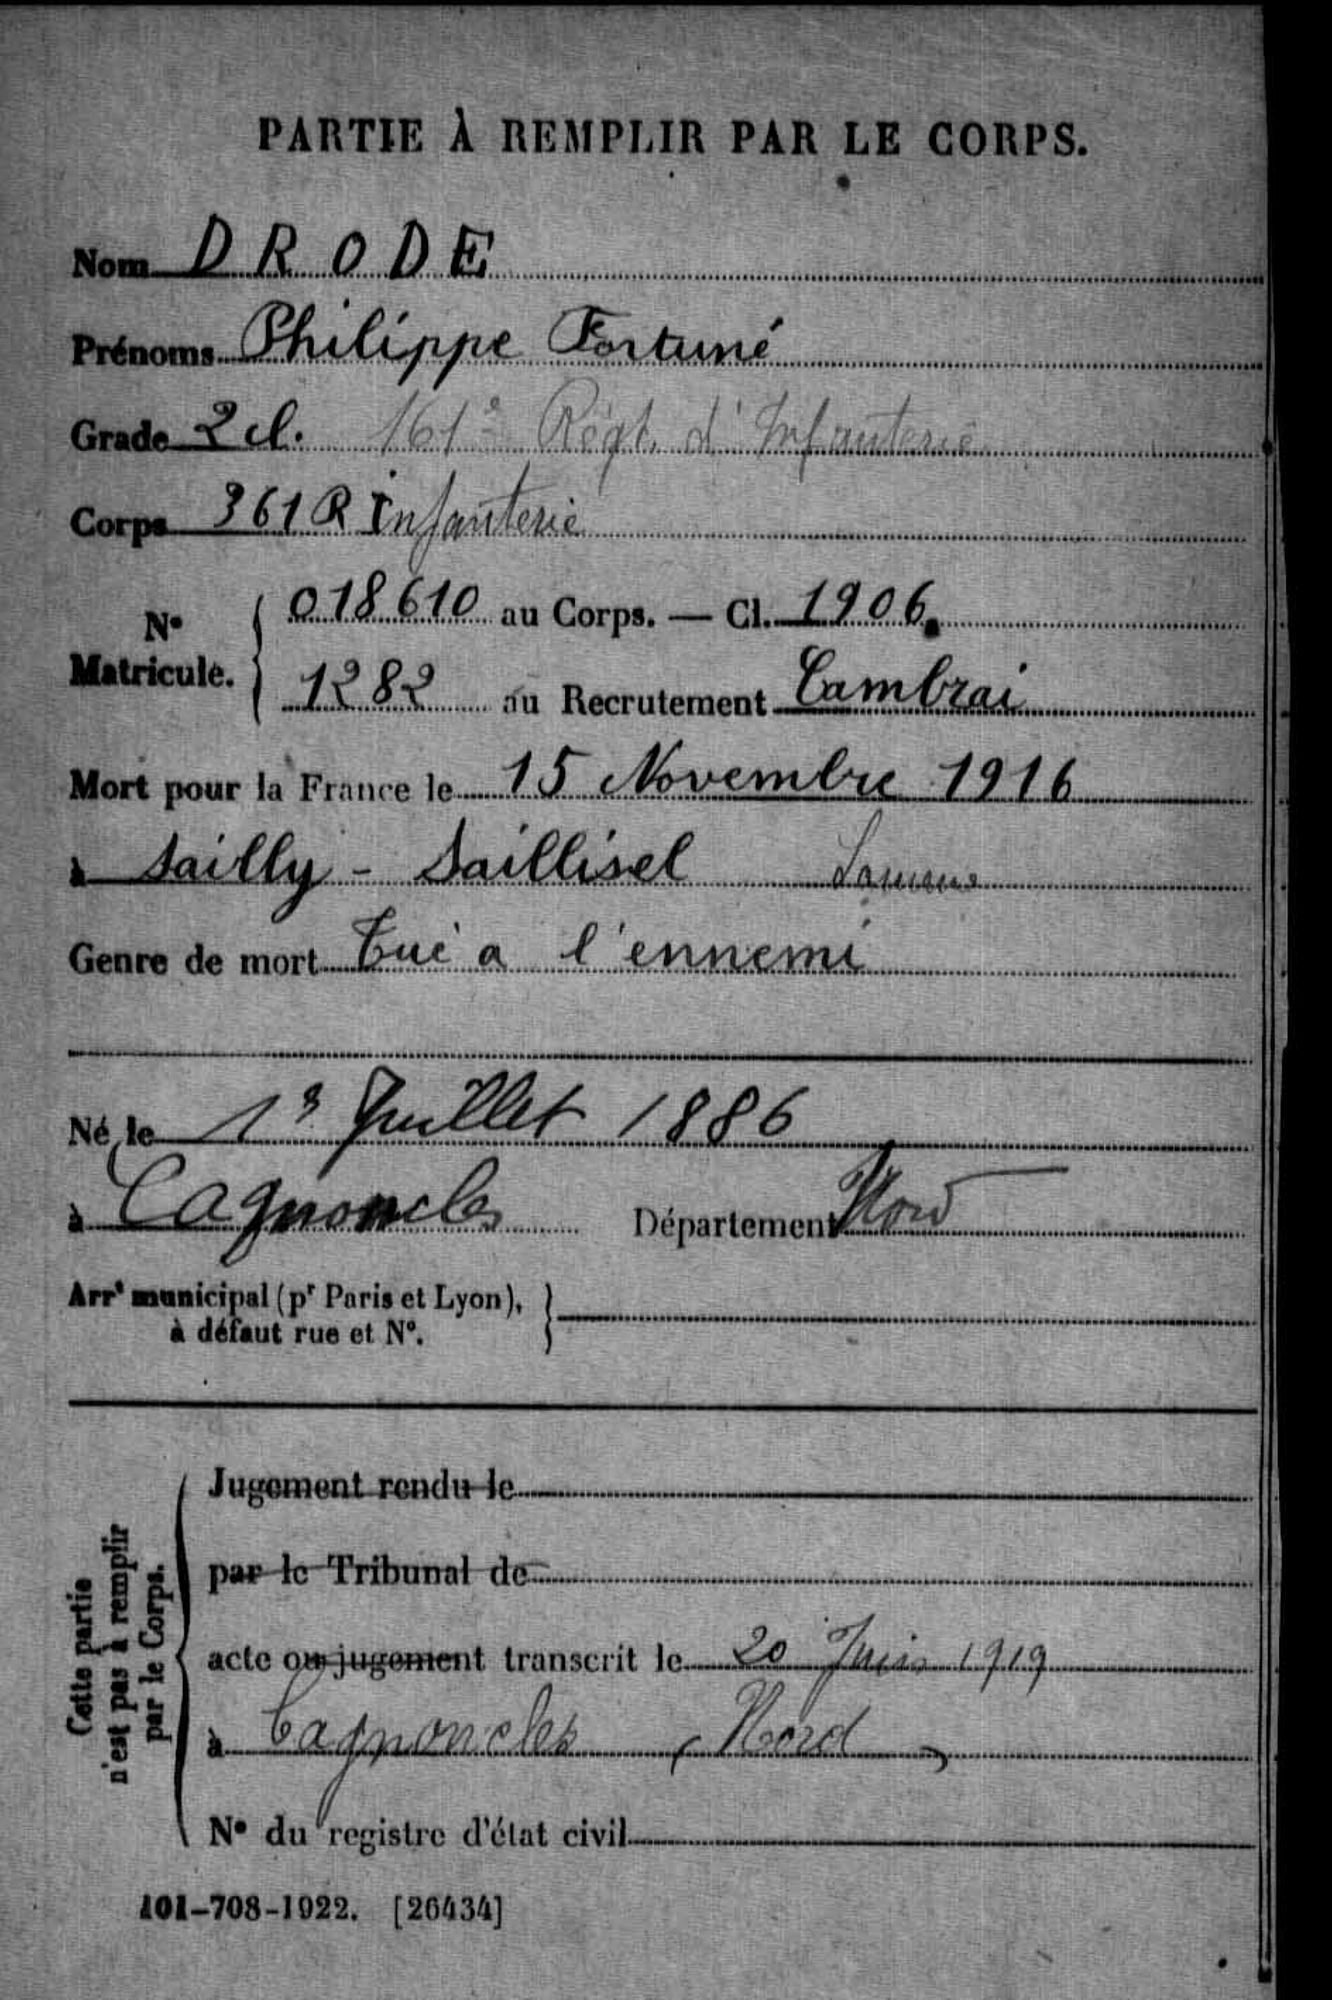 PARTIE À REMPLIR PAR LE CORPS.
Nom DRODE
Prénoms Philippe Fortuné
Grade 2 cl. 161e Régt. d'Infanterie
Corps 361 R Infanterie
No Matricule. { 018610 au Corps. — Cl. 1906.
1282 au Recrutement Cambrai
Mort pour la France le 15 Novembre 1916
à Sailly - Saillisel Somme
Genre de mort Tué a l'ennemi
Né le 1er Juillet 1886
à Cagnoncles Département Nord
Arrt municipal (pr Paris et Lyon),
à défaut rue et No.
Cette partie
n'est pas à remplir
par le Corps.
Jugement rendu le
par le Tribunal de
acte ou jugement transcrit le 20 Juin 1919
à Cagnoncles (Nord)
No du registre d'état civil
101-708-1922. [26434]